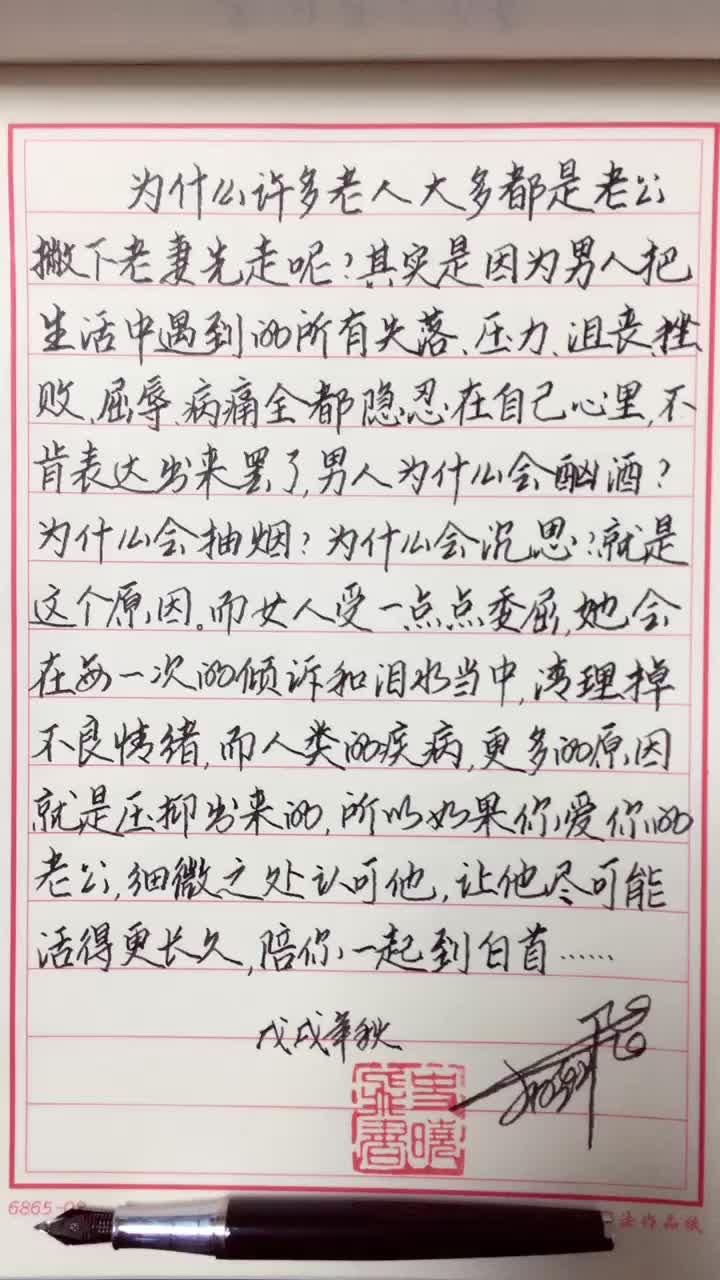 为什么许多老人大多都是老公
撇下老妻先走呢?其实是因为男人把
生活中遇到的所有失落、压力、沮丧、挫
败、屈辱、病痛全都隐忍在自己心里,不
肯表达出来罢了,男人为什么会酗酒?
为什么会抽烟?为什么会沉思?就是
这个原因。而女人受一点点委屈,她会
在每一次的倾诉和泪水当中,清理掉
不良情绪,而人类的疾病,更多的原因
就是压抑出来的,所以如果你爱你的
老公,细微之处认可他,让他尽可能
活得更长久,陪你一起到白首……
戊戌年秋
6865-0
法作品纸